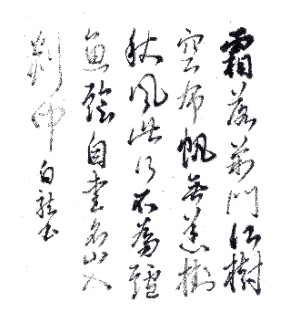 霜落荊門江樹
空布帆無恙掛
秋風此行不為鱸
魚鱠自愛名山入
剡中 白龍書